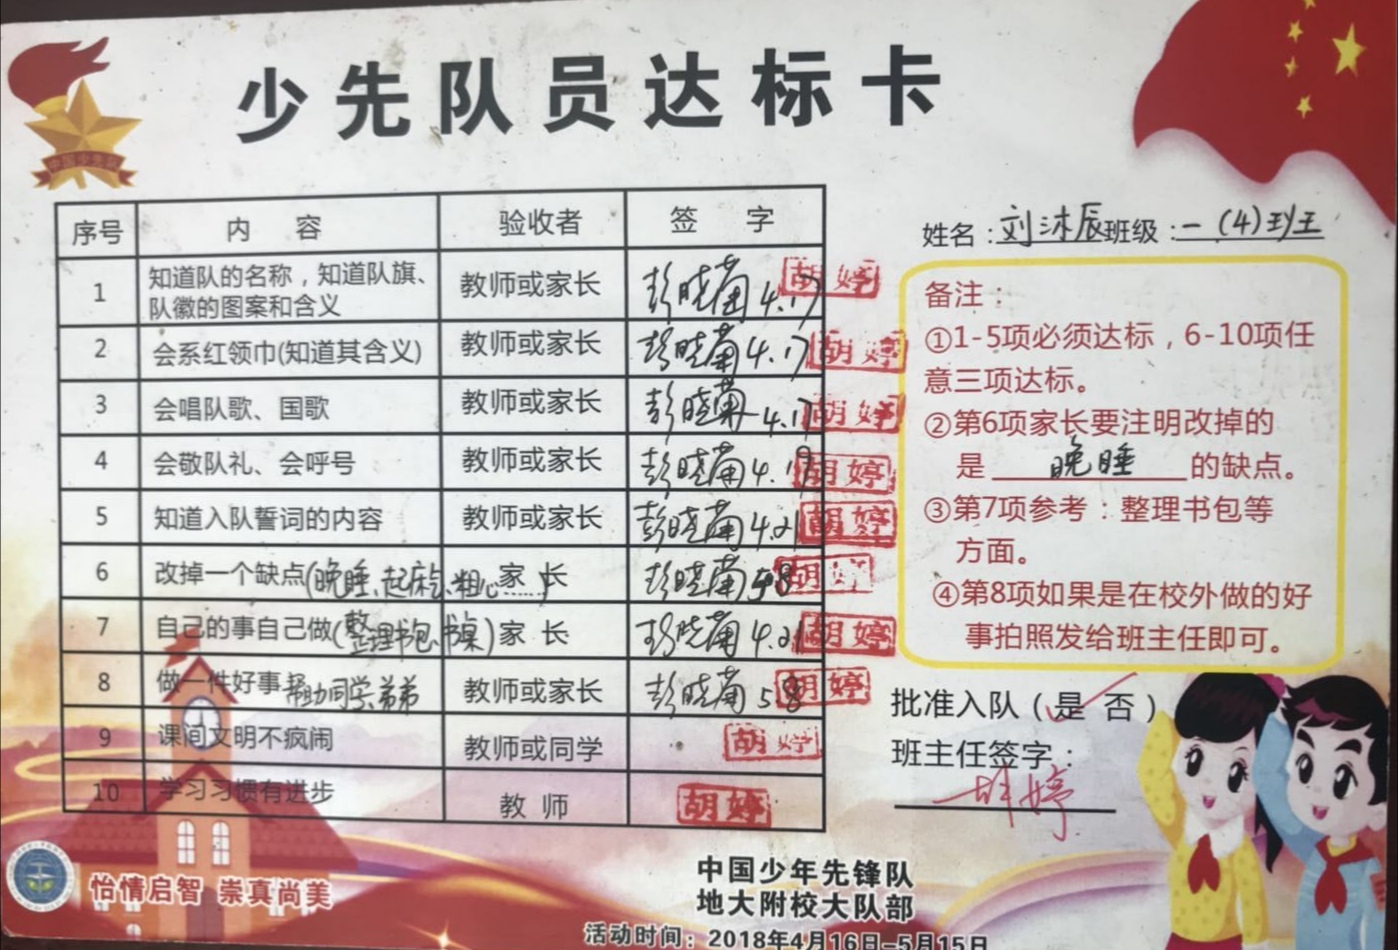 少先队员达标卡
中国少先队
姓名：刘沐辰 班级：一（4）班
序号 内 容 验收者 签 字
1 知道队的名称，知道队旗、队徽的图案和含义 教师或家长 彭晓菌 4.17 胡婷
2 会系红领巾(知道其含义) 教师或家长 彭晓菌 4.17 胡婷
3 会唱队歌、国歌 教师或家长 彭晓菌 4.17 胡婷
4 会敬队礼、会呼号 教师或家长 彭晓菌 4.19 胡婷
5 知道入队誓词的内容 教师或家长 彭晓菌 4.21 胡婷
6 改掉一个缺点(晚睡、起床气、粗心……) 家 长 彭晓菌 5.8 胡婷
7 自己的事自己做(整理书包、书桌) 家 长 彭晓菌 4.21 胡婷
8 做一件好事 帮助同学、弟弟 教师或家长 彭晓菌 5.8 胡婷
9 课间文明不疯闹 教师或同学 胡婷
10 学习习惯有进步 教 师 胡婷
备注：
①1-5项必须达标，6-10项任
意三项达标。
②第6项家长要注明改掉的
是 晚睡 的缺点。
③第7项参考：整理书包等
方面。
④第8项如果是在校外做的好
事拍照发给班主任即可。
批准入队（是 否）
班主任签字：
胡婷
怡情启智 崇真尚美
中国少年先锋队
地大附校大队部
活动时间：2018年4月16日-5月15日